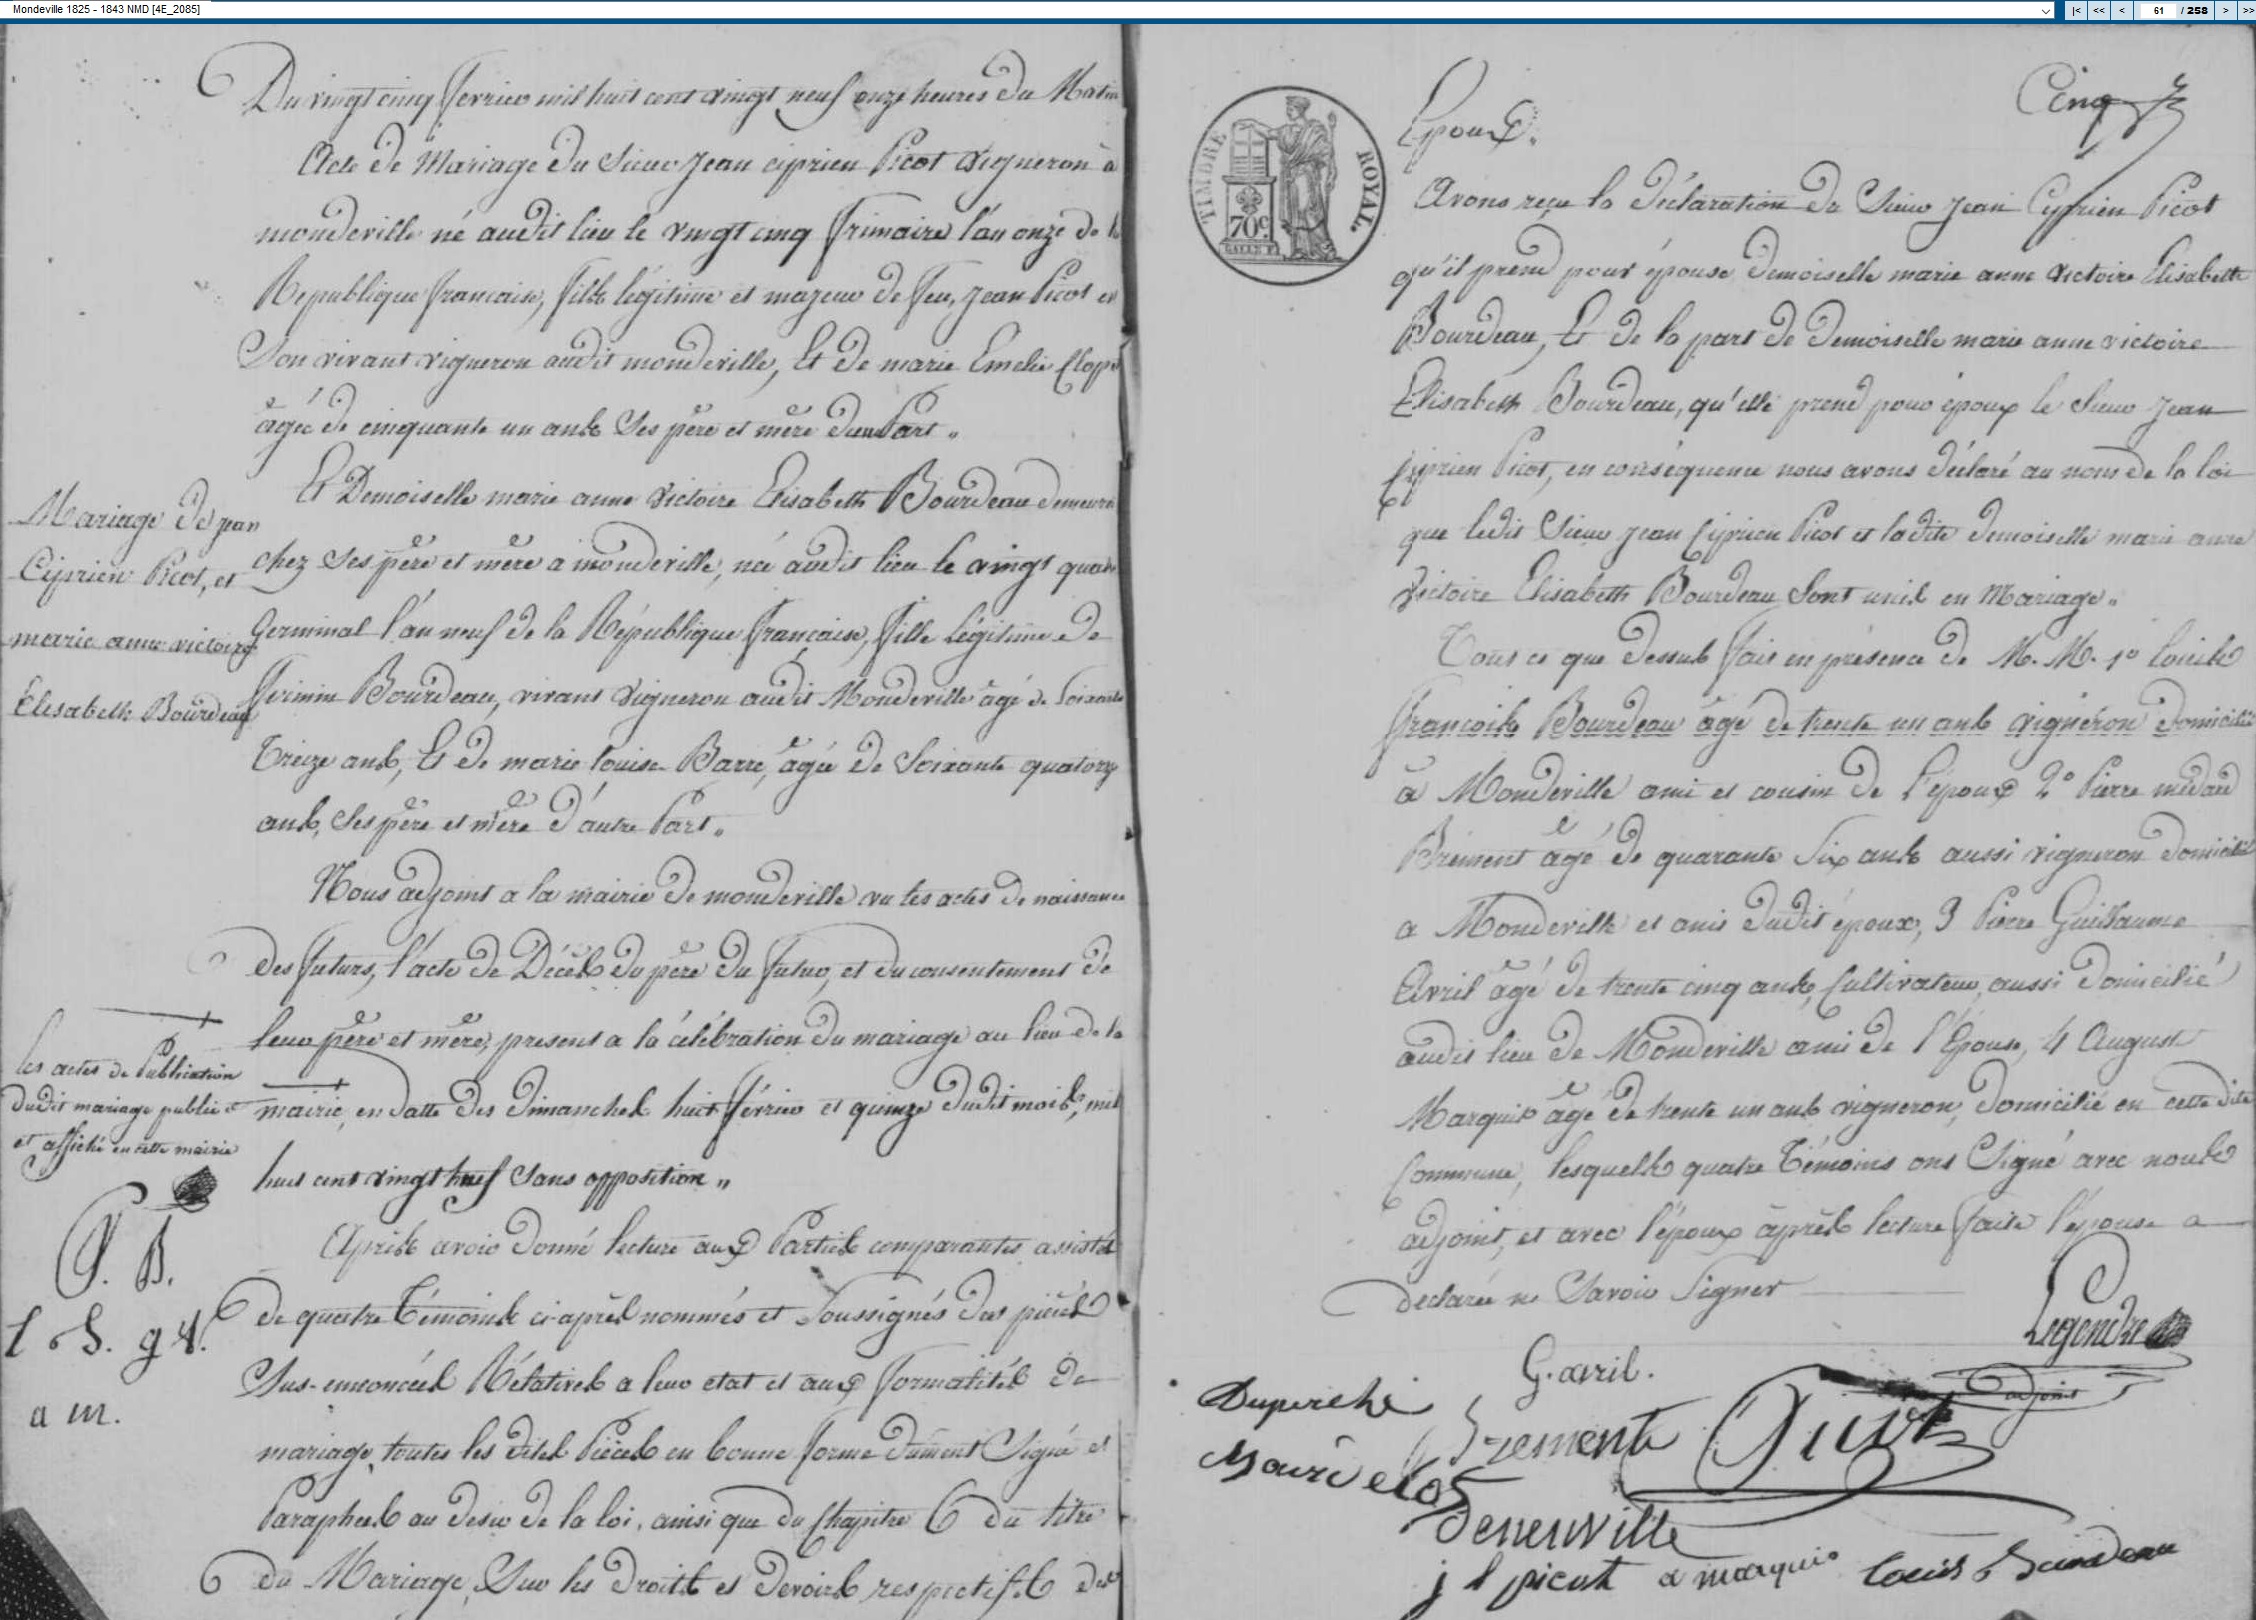 Mondeville 1825 - 1843 NMD [4E_2085]
|< << < 61 / 258 > >>
Du vingt cinq fevrier mil huit cent vingt neuf onze heures du Matin
Acte de Mariage du Sieur Jean ciprien Picot vigneron à
mondeville né audit lieu le vingt cinq frimaire l'an onze de la
Republique francaise, fils légitime et majeur de feu, Jean Picot en
Son vivant vigneron audit mondeville, Et de marie Emelie
agée de cinquante un ans Ses père et mère d'une Part.
Et Demoiselle marie anne victoire Elisabeth Bourdeau demeurant
chez Ses père et mère a mondeville, née audit lieu le vingt quatre
Germinal l'an neuf de la République française, fille légitime de
firmin Bourdeau, vivant vigneron audit Mondeville agé de Soixante
Treize ans, Et de marie louise Barré, agée de Soixante quatorze
ans, Ses père et mère d'autre Part.
Mariage de jean
Ciprien Picot, et
marie anne victoire
Elisabeth Bourdeau
Nous adjoint a la mairie de mondeville vu les actes de naissance
des futurs, l'acte de Décès du père du futur, et du consentement de
leur père et mère, present a la célébration du mariage au lieu de la
mairie, en datte des Dimanches huit février et quinze dudit mois, mil
huit cent vingt neuf Sans opposition „
les actes de Publication
dudit mariage publié et
et affiché en cette mairie
P. B.
l S. g A.
a m.
Après avoir donné lecture aux Parties comparantes assistés
de quatre Témoins ci-après nommés et Soussignés des pièces
Sus-ennoncées Rélatives a leur etat et aux formalités de
mariage, toutes les dites Pièces en bonne forme dument Signé et
Paraphées au desir de la loi, ainsi que du Chapitre 6 du titre
du Mariage, Sur les droits et devoirs respectifs des
Cinq
TIMBRE ROYAL.
70c
Epoux.
Avons reçu la déclaration du Sieur Jean Cyprien Picot
qu'il prend pour épouse Demoiselle marie anne victoire Elisabeth
Bourdeau, Et de la part de Demoiselle marie anne victoire
Elisabeth Bourdeau, qu'elle prend pour époux le Sieur Jean
Cyprien Picot, en conséquence nous avons déclaré au nom de la loi
que ledit Sieur Jean Cyprien Picot et ladite demoiselle marie anne
victoire Elisabeth Bourdeau Sont unis en Mariage.
Tout ce que dessus fait en présence de M. M. 1o louis
françois Bourdeau agé de trente un ans vigneron domicilié
à Mondeville ami et cousin de l'époux 2o Pierre médard
Brement agé de quarante Six ans aussi vigneron domicilié
a Mondeville et ami dudit époux, 3 Pierre Guillaume
Avril agé de trente cinq ans, Cultivateur, aussi domicilié
audit lieu de Mondeville ami de l'Epouse, 4 August
Marquis agé de trente un ans vigneron, domicilié en cette dite
Commune, lesquels quatre Témoins ont Signé avec nous
adjoint, et avec l'époux après lecture faite l'épouse a
déclarée ne Savoir Signer
Legendre
adjoint
G. avril.
Duperché
Brement
Picot
Deneuville
j l picot a marquis louis Bourdeau